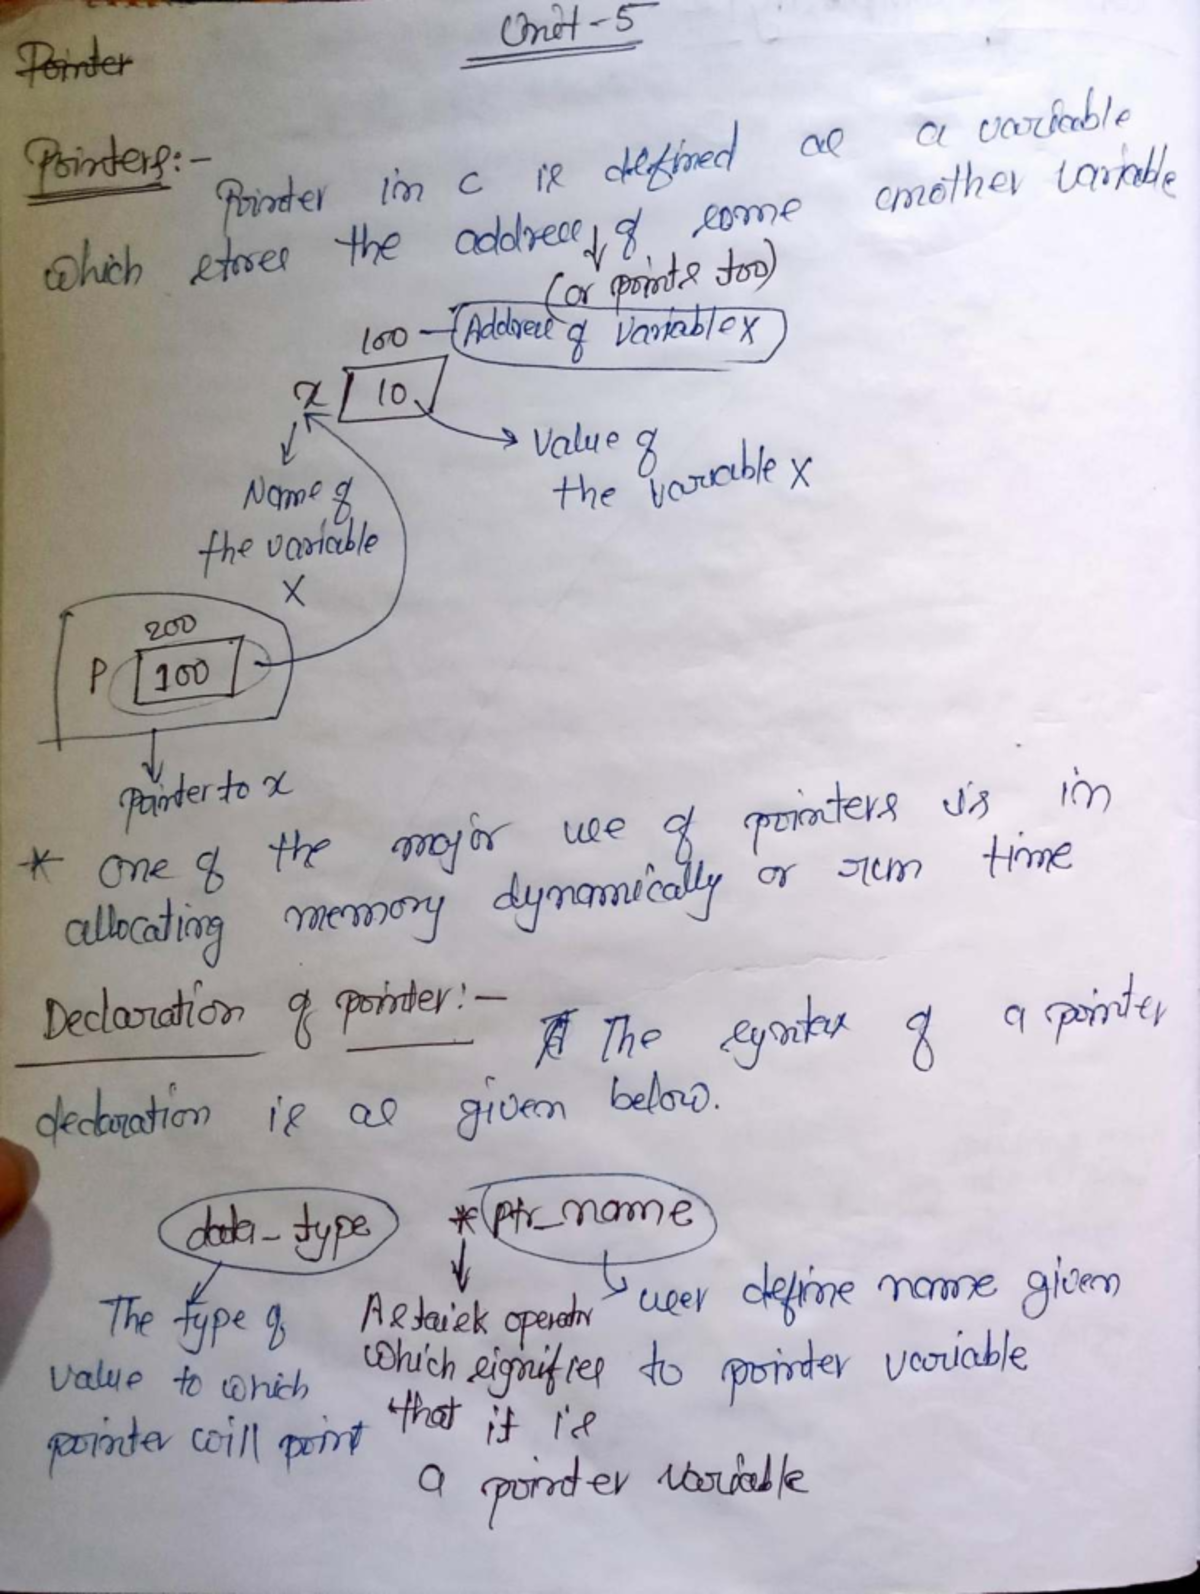 Unit - 5
Pointer
Pointers:-
Pointer in c is defined as a variable
which stores the address of some another variable
(or points too)
100 - Address of variable x
x 10
Value of
the variable x
Name of
the variable
x
200
P 100
Pointer to x
* One of the major use of pointers is in
allocating memory dynamically or run time
Declaration of pointer:- The syntax of a pointer
declaration is as given below.
data_type *ptr_name
The type of
value to which
pointer will point
Astaisk operator
which signifies
that it is
a pointer variable
user define name given
to pointer variable